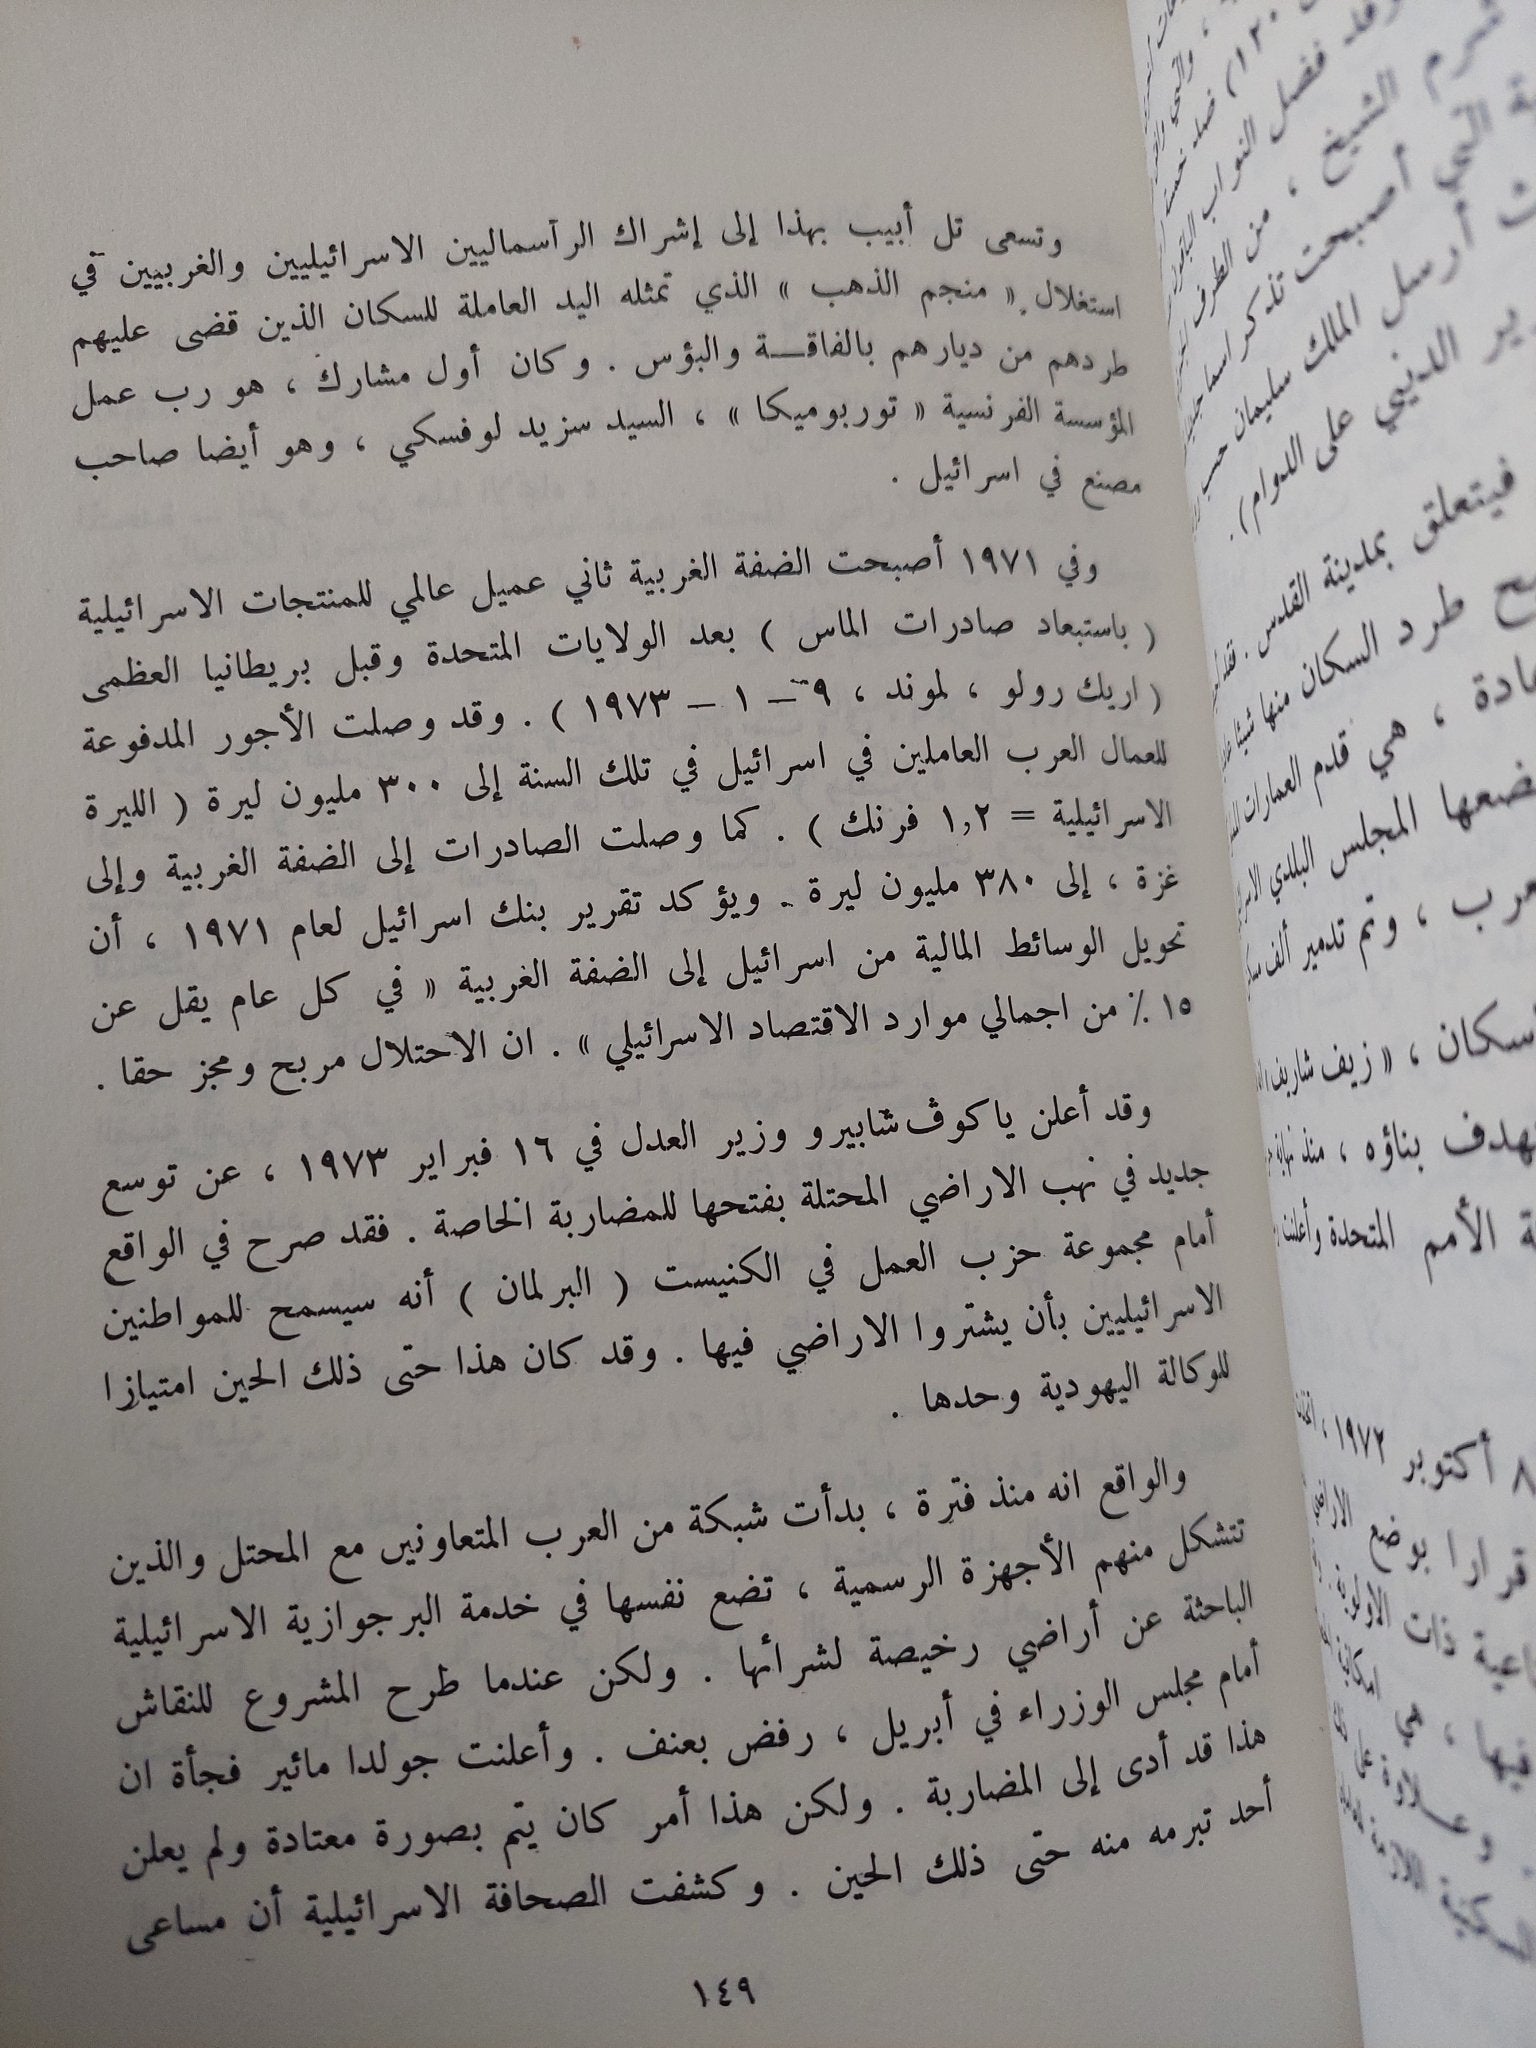 وتسعى تل أبيب بهذا إلى إشراك الرآسماليين الاسرائيليين والغربيين في
استغلال « منجم الذهب » الذي تمثله اليد العاملة للسكان الذين قضى عليهم
طردهم من ديارهم بالفاقــة والبؤس . وكان أول مشارك ، هو رب عمل
المؤسسة الفرنسية « توربوميكا » ، السيد سزيد لوفسكي ، وهو أيضا صاحب
مصنع في اسرائيل .
وفي ١٩٧١ أصبحت الضفة الغربية ثاني عميل عالمي للمنتجات الاسرائيلية
( باستبعاد صادرات الماس ) بعد الولايات المتحدة وقبل بريطانيا العظمى
( اريك رولو ، لموند ، ٩ – ١ – ١٩٧٣ ) . وقد وصلت الأجور المدفوعة
للعمال العرب العاملين في اسرائيل في تلك السنة إلى ٣٠٠ مليون ليرة ( الليرة
الاسرائيلية = ١,٢ فرنك ) . كما وصلت الصادرات إلى الضفة الغربية وإلى
غزة ، إلى ٣٨٠ مليون ليرة . ويؤكد تقرير بنك اسرائيل لعام ١٩٧١ ، أن
تحويل الوسائط المالية من اسرائيل إلى الضفة الغربية « في كل عام يقل عن
١٥ ٪ من اجمالي موارد الاقتصاد الاسرائيلي » . ان الاحتلال مربح ومجز حقا .
وقد أعلن ياكوڤ شابيرو وزير العدل في ١٦ فبراير ١٩٧٣ ، عن توسع
جديد في نهب الاراضي المحتلة بفتحها للمضاربة الخاصة . فقد صرح في الواقع
أمام مجموعة حزب العمل في الكنيست ( البرلمان ) أنه سيسمح للمواطنين
الاسرائيليين بأن يشتروا الاراضي فيها . وقد كان هذا حتى ذلك الحين امتيازا
للوكالة اليهودية وحدها .
والواقع انه منذ فترة ، بدأت شبكة من العرب المتعاونين مع المحتل والذين
تتشكل منهم الأجهزة الرسمية ، تضع نفسها في خدمة البرجوازية الاسرائيلية
الباحثة عن أراضي رخيصة لشرائها . ولكن عندما طرح المشروع للنقاش
أمام مجلس الوزراء في أبريل ، رفض بعنف . وأعلنت جولدا مائير فجأة ان
هذا قد أدى إلى المضاربة . ولكن هذا أمر كان يتم بصورة معتادة ولم يعلن
أحد تبرمه منه حتى ذلك الحين . وكشفت الصحافة الاسرائيلية أن مساعى
١٤٩
فضل النواب
شرم الشيخ ، من الطرف
التي أصبحت تذكر
أرسل الملك سليمان
الديني على الدوام) .
فيتعلق بمدينة القدس .
طرد السكان منها شيئا
، هي قدم العمارات
المجلس البلدي
، وتم تدمير ألف
، « زيف شاريف
بناؤه ، منذ نهاية
الأمم المتحدة وأعلنت
٨ أكتوبر ١٩٧٢ ،
قرارا بوضع
ذات الأولوية
فيها ، هي امكانية
وعــلاوة على ذلك